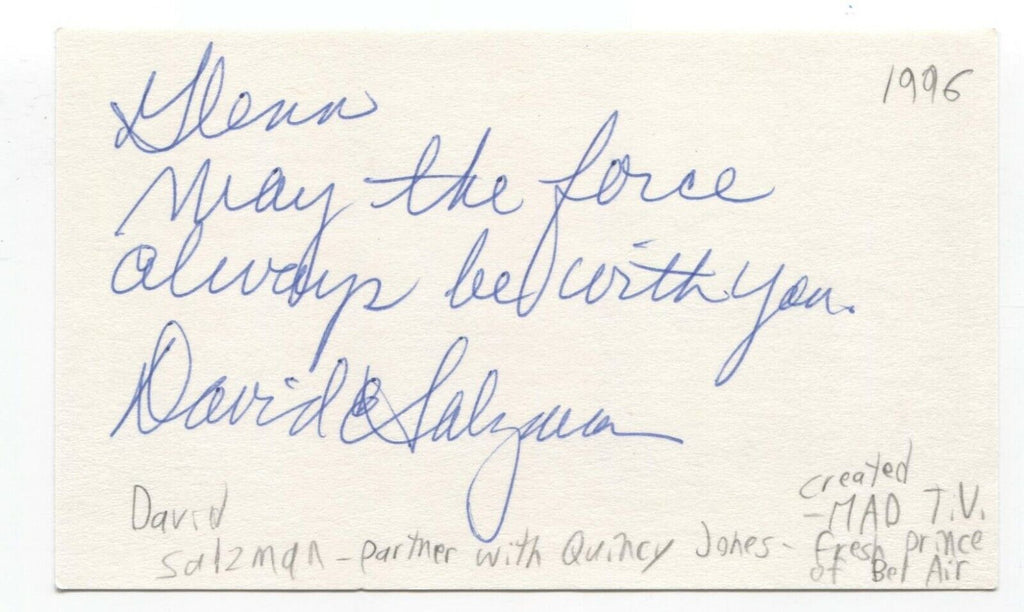 1996
Glenn
May the force
always be with you.
David E Salzman
David
Salzman - partner with Quincy Jones -
created
- MAD T.V.
fresh prince
of Bel Air